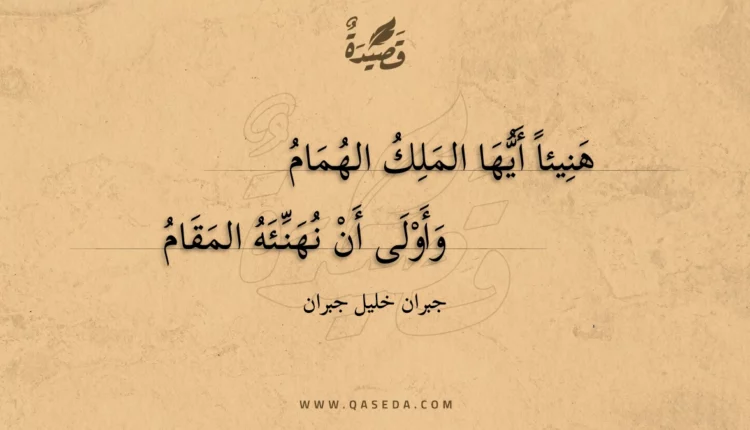 قَصِيدَةٌ
هَنِيئاً أَيُّهَا المَلِكُ الهُمَامُ
وَأَوْلَى أَنْ نُهَنِّئَهُ المَقَامُ
جبران خليل جبران
WWW.QASEDA.COM